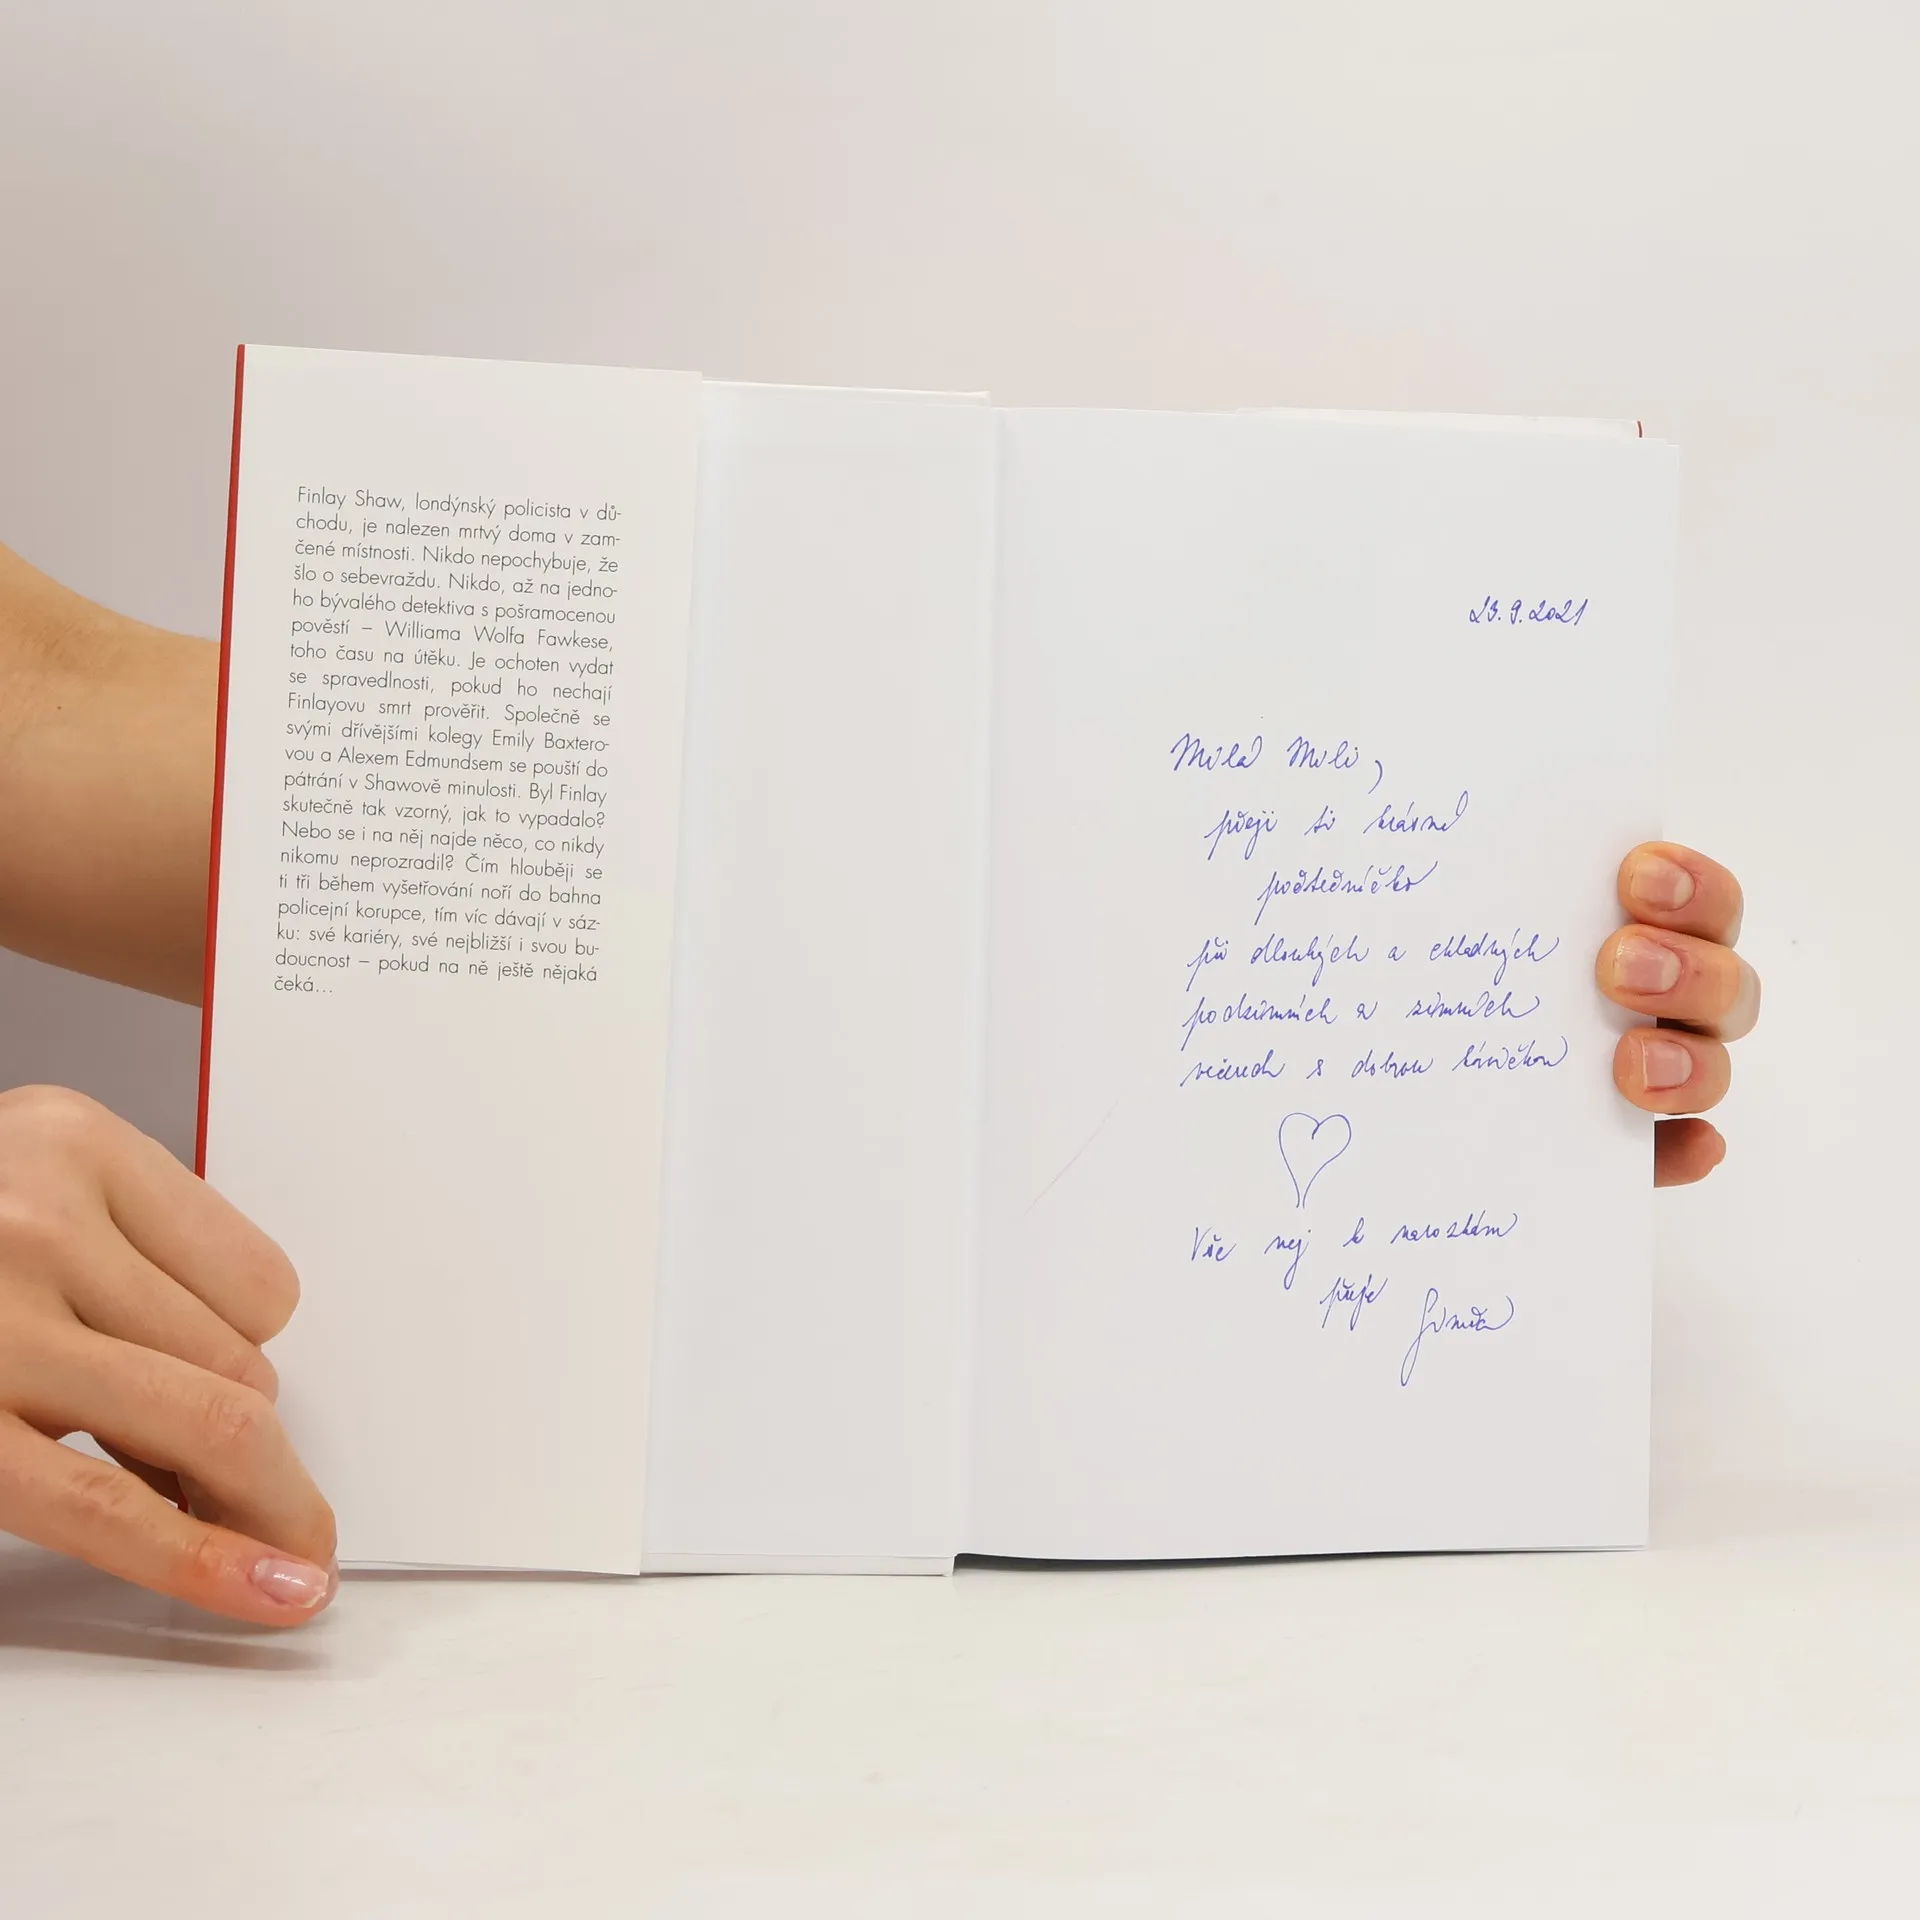 Finlay Shaw, londýnský policista v dů-
chodu, je nalezen mrtvý doma v zam-
čené místnosti. Nikdo nepochybuje, že
šlo o sebevraždu. Nikdo, až na jedno-
ho bývalého detektiva s pošramocenou
pověstí – Williama Wolfa Fawkese,
toho času na útěku. Je ochoten vydat
se spravedlnosti, pokud ho nechají
Finlayovu smrt prověřit. Společně se
svými dřívějšími kolegy Emily Baxtero-
vou a Alexem Edmundsem se pouští do
pátrání v Shawově minulosti. Byl Finlay
skutečně tak vzorný, jak to vypadalo?
Nebo se i na něj najde něco, co nikdy
nikomu neprozradil? Čím hlouběji se
ti tři během vyšetřování noří do bahna
policejní korupce, tím víc dávají v sáz-
ku: své kariéry, své nejbližší i svou bu-
doucnost – pokud na ně ještě nějaká
čeká...
23. 9. 2021
Milá Mili,
přeji ti krásné
při dlouhých a chladných
podzimních a zimních
večerech s dobrou kávičkou
Vše nej k narozkám
přeje